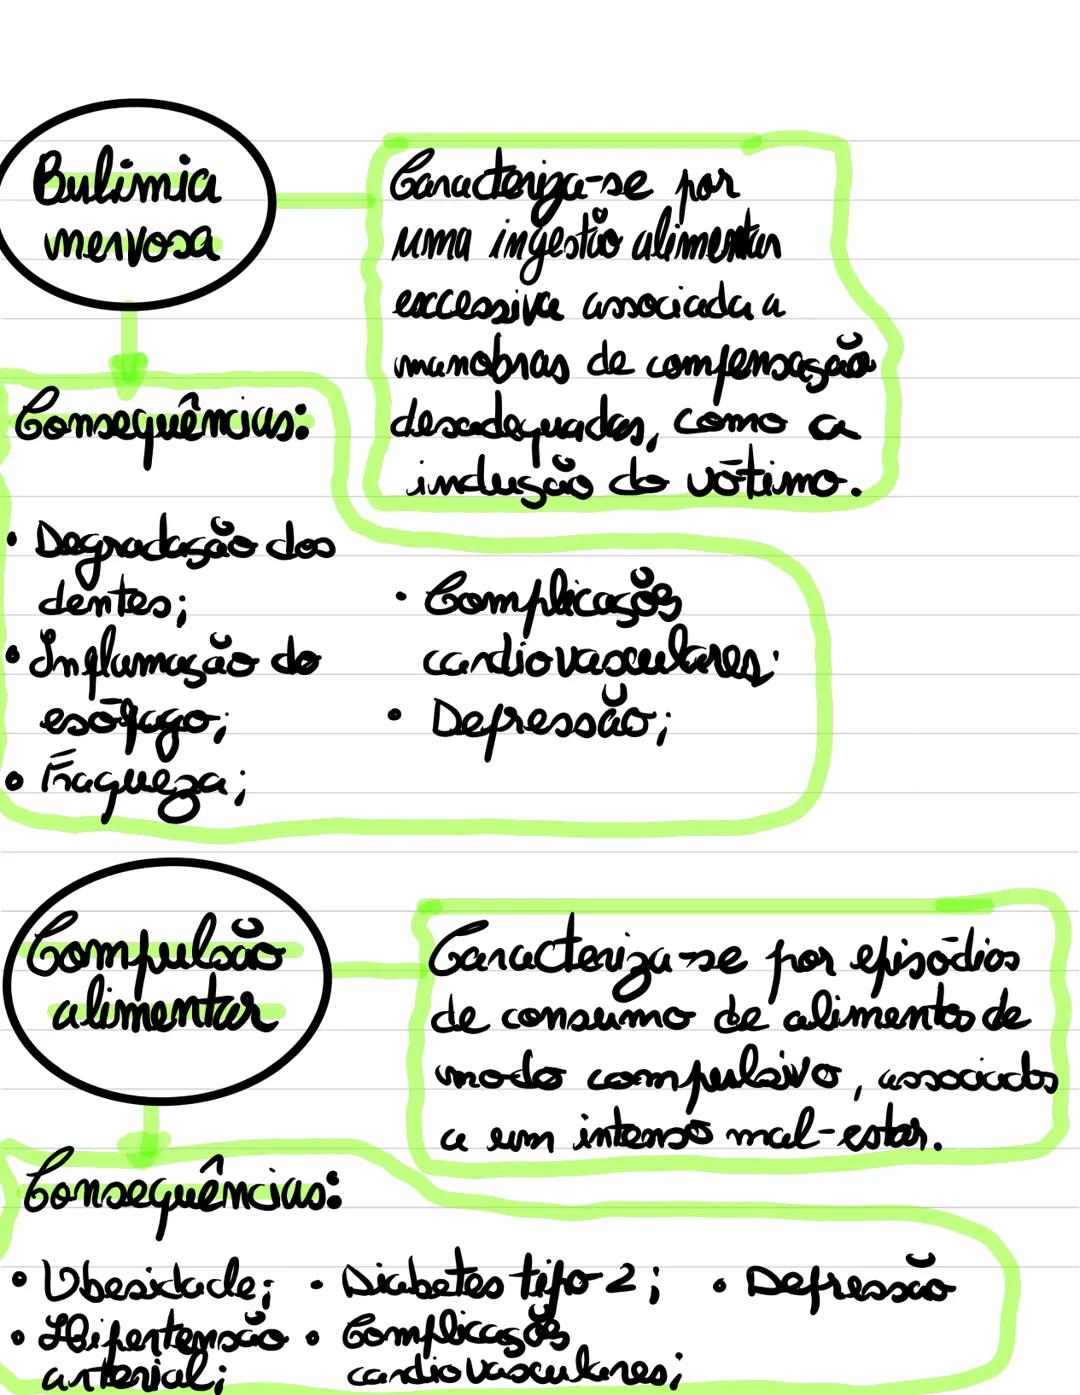 Bulimia
nervosa
Caracteriza-se por
uma ingestão alimentar
excessiva associada a
manobras de compensação
desadequadas, como a
indução do vótimo.
Consequências:
• Degradação dos
dentes;
• Inflamação do
esófago;
• Fraqueza;
• Complicações
cardiovasculares;
• Depressão;
Compulsão
alimentar
Caracteriza-se por episódios
de consumo de alimentos de
modo compulsivo, associados
a um intenso mal-estar.
Consequências:
• Obesidade; • Diabetes tipo 2; • Depressão
• Hipertensão • Complicações
arterial; cardiovasculares;